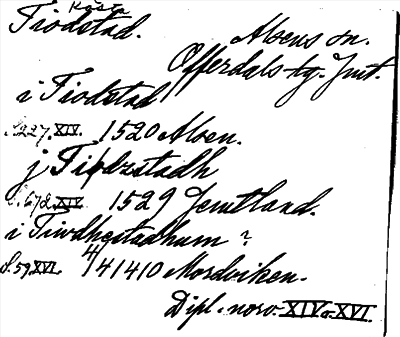 Kösta
Tiodstad. Alsens sn.
Offerdals tg. Jmt.
i Tiodstad
S. 227. XIV. 1520 Alsen.
j Tiodzstadh
S. 672. XIV 1529 Jemtland.
i Tiwdhestadhum ?
S. 59 XVI. 4/4 1410 Mordviken.
Dipl. norv. XIV o. XVI.